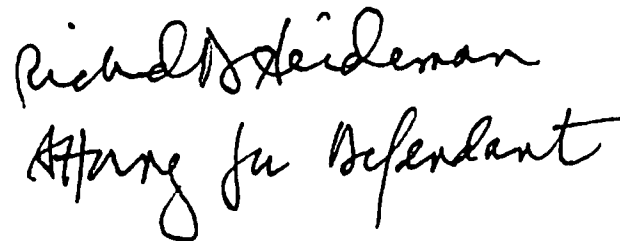 Richard D Heideman
Attorney for Defendant